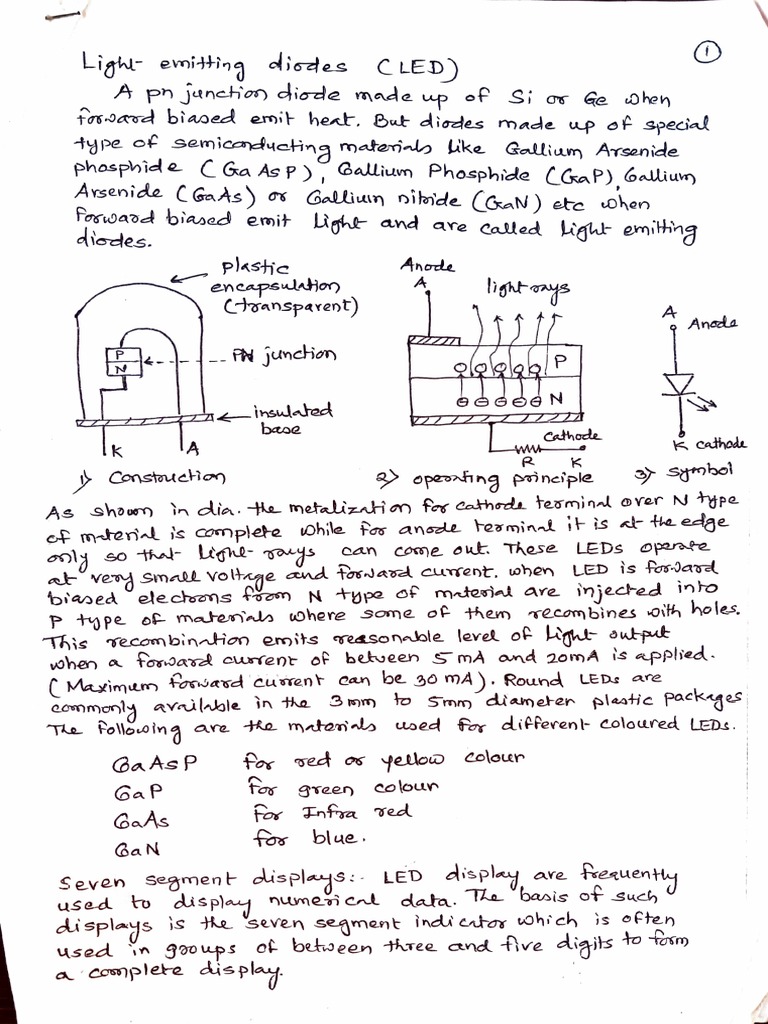 1
Light-emitting diodes (LED)
A pn junction diode made up of Si or Ge when
forward biased emit heat. But diodes made up of special
type of semiconducting materials like Gallium Arsenide
phosphide (GaAsP), Gallium Phosphide (GaP), Gallium
Arsenide (GaAs) or Gallium nitride (GaN) etc when
forward biased emit light and are called light emitting
diodes.
plastic
encapsulation
(transparent)
P
N
PN junction
insulated
base
K
A
1) Construction
Anode
A
light rays
P
N
cathode
R
K
2) operating principle
A
Anode
K cathode
3) symbol
As shown in dia. the metalization for cathode terminal over N type
of material is complete while for anode terminal it is at the edge
only so that light-rays can come out. These LEDs operate
at very small voltage and forward current. when LED is forward
biased electrons from N type of material are injected into
P type of materials where some of them recombines with holes.
This recombination emits reasonable level of light output
when a forward current of between 5 mA and 20mA is applied.
(Maximum forward current can be 30 mA). Round LEDs are
commonly available in the 3mm to 5mm diameter plastic packages
The following are the materials used for different coloured LEDs.
GaAsP for red or yellow colour
GaP for green colour
GaAs for Infra red
GaN for blue.
Seven segment displays:- LED display are frequently
used to display numerical data. The basis of such
displays is the seven segment indicator which is often
used in groups of between three and five digits to form
a complete display.